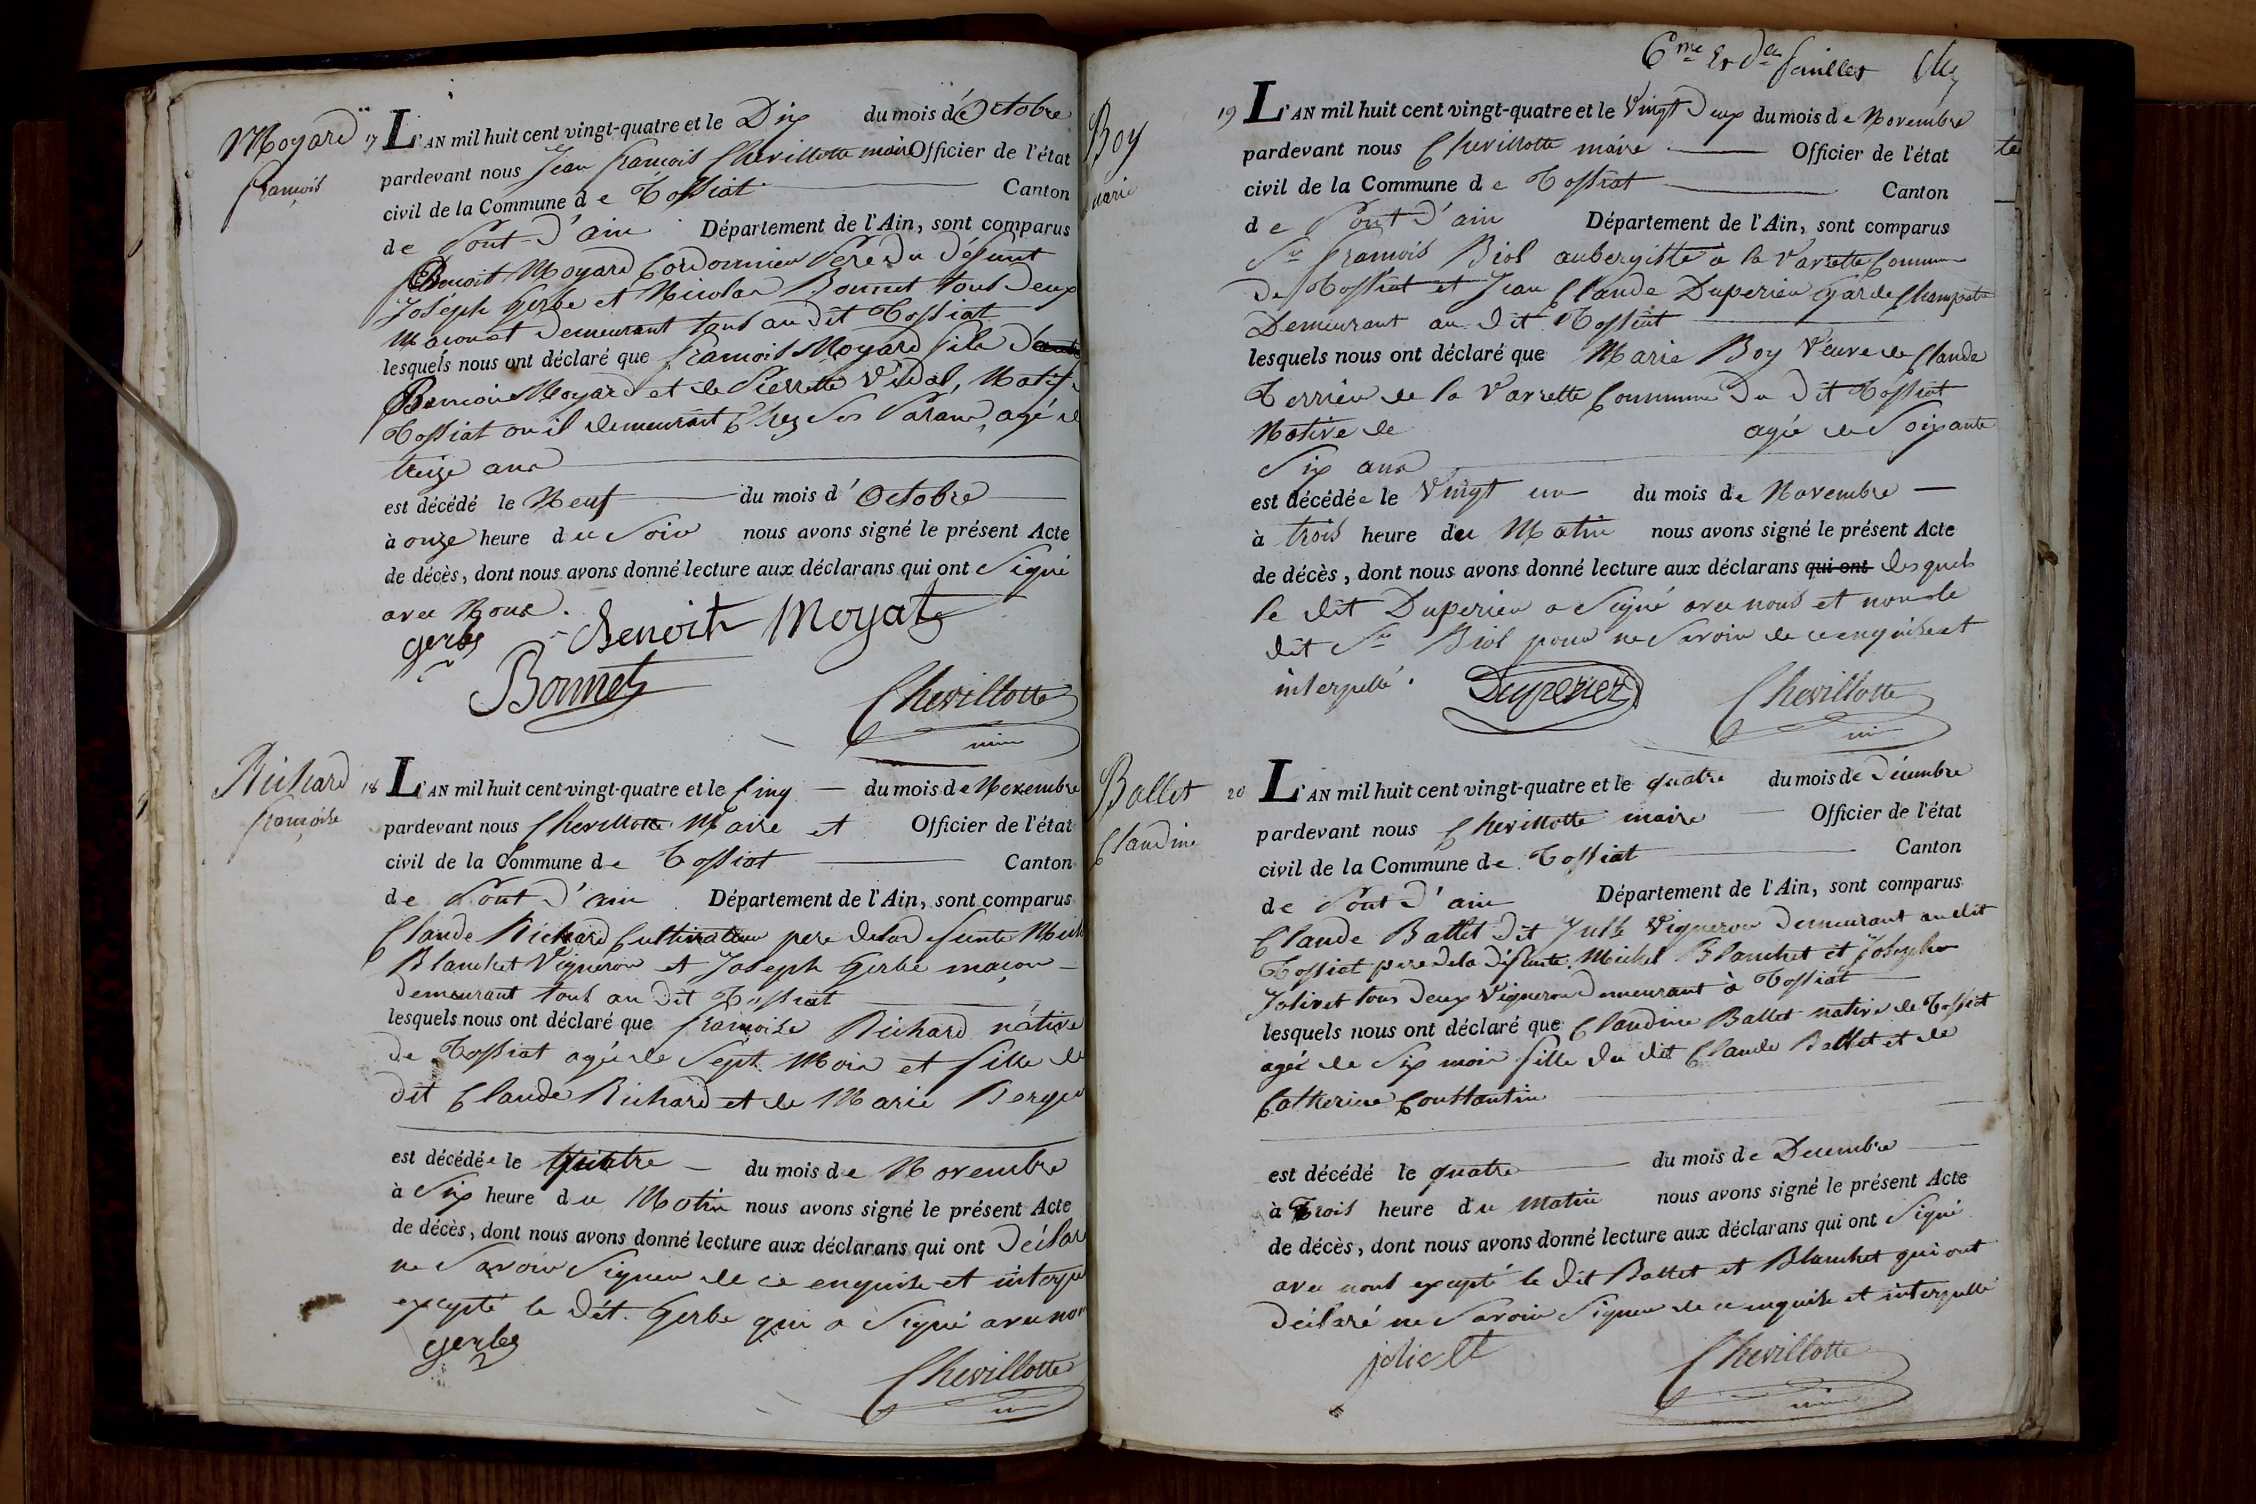 Moyard
françois
17 L'AN mil huit cent vingt-quatre et le Dix du mois d'Octobre
pardevant nous Jean françois Chevillotte maire Officier de l'état
civil de la Commune de Tossiat Canton
de Pont-d'ain Département de l'Ain, sont comparus
Benoit Moyard Cordonnier Pere du défunt
Joseph Gerbe et Nicolas Bonnet tous deux
maçon et demeurant tous au dit Tossiat
lesquels nous ont déclaré que françois Moyard fils
Benoit Moyard et de Pierrette Vidal, Natif
Tossiat ou il demeurait Chez Ses Parans, agé de
treize ans
est décédé le Neuf du mois d'Octobre
à onze heure du Soir nous avons signé le présent Acte
de décès, dont nous avons donné lecture aux déclarans qui ont Signé
avec Nous.
gerbe Benoit Moyat
Bonnet Chevillotte
Richard
françoise
18 L'AN mil huit cent vingt-quatre et le Cinq du mois de Novembre
pardevant nous Chevillotte Maire et Officier de l'état
civil de la Commune de Tossiat Canton
de Pont d'ain Département de l'Ain, sont comparus
Claude Richard Cultivateur pere de la defunte
Blanchet Vigneron et Joseph Gerbe maçon
demeurant tous au dit Tossiat
lesquels nous ont déclaré que françoise Richard native
de Tossiat agée de Sept Mois et fille de
dit Claude Richard et de Marie
est décédée le quatre du mois de Novembre
à Six heure du Matin nous avons signé le présent Acte
de décès, dont nous avons donné lecture aux déclarans qui ont
ne Savoir Signer de ce enquise et
excepté le dit Gerbe qui a Signé avec
gerbe
Chevillotte
6me et der feuillet
Boy
Marie
19 L'AN mil huit cent vingt-quatre et le Vingt Deux du mois de Novembre
pardevant nous Chevillotte maire Officier de l'état
civil de la Commune de Tossiat Canton
de Pont d'ain Département de l'Ain, sont comparus
Sr françois Biol aubergiste a la Varette Commune
de Tossiat et Jean Claude Duperieu Garde Champetre
Demeurant au dit Tossiat
lesquels nous ont déclaré que Marie Boy Veuve de Claude
Terrier de la Varette Commune du dit Tossiat
Native de agée de Soixante
Six ans
est décédée le Vingt un du mois de Novembre
à trois heure du Matin nous avons signé le présent Acte
de décès, dont nous avons donné lecture aux déclarans qui ont desquels
le dit Duperieu a Signé avec nous et non le
dit Sr Biol pour ne Savoir de ce enquise et
interpellé.
Duperier Chevillotte
Ballet
Claudine
20 L'AN mil huit cent vingt-quatre et le quatre du mois de Décembre
pardevant nous Chevillotte maire Officier de l'état
civil de la Commune de Tossiat Canton
de Pont d'ain Département de l'Ain, sont comparus
Claude Ballet dit Vigneron demeurant au dit
Tossiat pere de la défunte, Michel Blanchet et Joseph
Jolivet tous deux Vigneron demeurant à Tossiat
lesquels nous ont déclaré que Claudine Ballet native de Tossiat
agée de Six mois fille du dit Claude Ballet et de
Catherine Constantin
est décédé le quatre du mois de Decembre
à Trois heure du matin nous avons signé le présent Acte
de décès, dont nous avons donné lecture aux déclarans qui ont Signé
avec nous excepté le dit Ballet et Blanchet qui ont
déclaré ne Savoir Signer de ce enquise et interpellé
Chevillotte